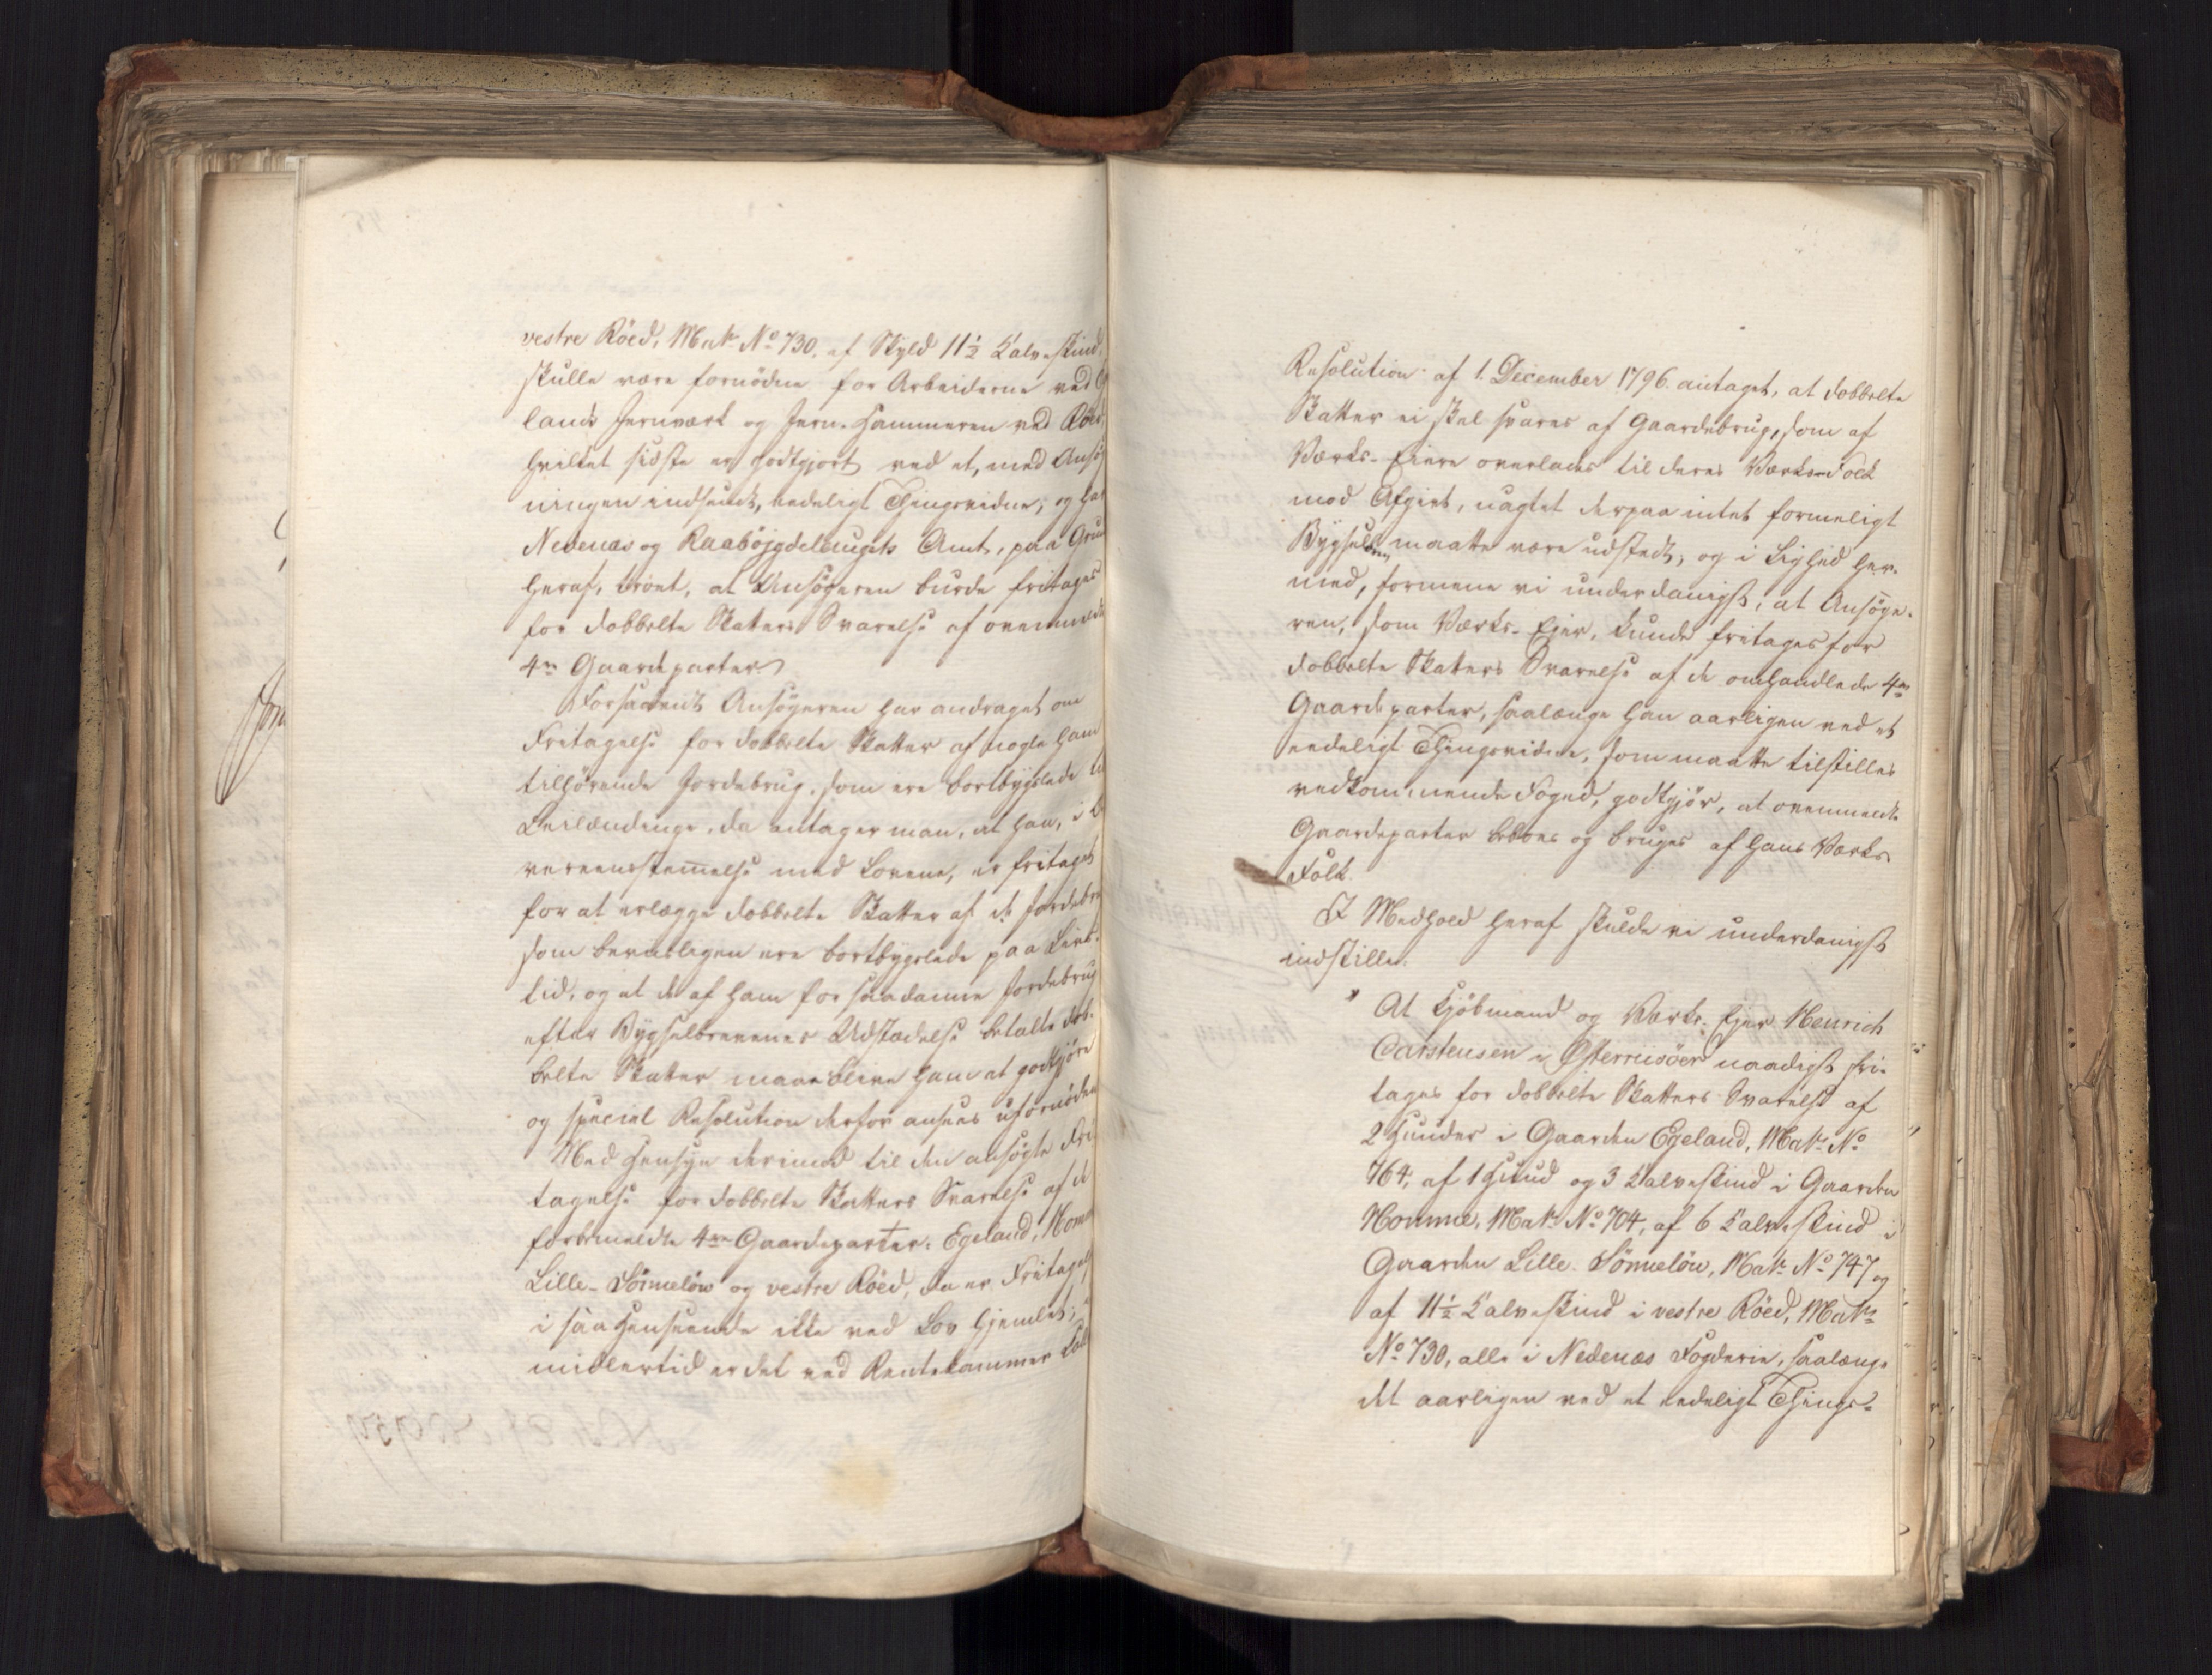 vestre Röed, Matr. No 730, af Skyld 11½ Kalveskind,
skulle være fornödne for Arbeiderne ved
lands Jernværk og Jern-Hammeren ved Röed,
hvilket sidste er godtgjort ved et, med Ansög
ningen indsendt, eedeligt Thingsvidne; og har
Nedenæs og Raabøjgdelaugets Amt, paa Grund
heraf, troet, at Ansögeren burde fritages
for dobbelte Skatters Svarelse af ovenmeldte
4re Gaardeparter.
Forsaavidt Ansögeren har andraget om
Fritagelse for dobbelte Skatter af nogle ham
tilhörende Jordebrug, som ere bortbygslede til
Leilændinge, da antager man, at han, i O
vereensstemmelse med Lovene, er fritaget
for at erlægge dobbelte Skatter af de Jordebrug
som beviisligen ere bortbygslede paa Livs-
tid, og at de af ham for saadanne Jordebrug
efter Bygselbrevenes Udstædelse betalte dob-
belte Skatter maae blive ham at godtgjöre
og special Resolution derfor ansees ufornöden
Med Hensyn derimod til den ansögte Fri
tagelse for dobbelte Skatters Svarelse af de
forbemeldte 4re Gaardeparter: Egeland, Homme
Lille-Sönnelöw og vestre Röed, da er Fritagelse
i saa Henseende ikke ved Lov hjemlet;
midlertid er det ved Rentekammer Col
Resolution af 1. December 1796 antaget, at dobbelte
Skatter ei skal svares af Gaardebrug, som af
Værks-Eiere overlades til deres Værks-Folk
mod Afgivt, uagtet derpaa intet formeligt
Bygselbrev maatte være udstedt; og i Lighed her-
med, formene vi underdanigst, at Ansöge-
ren, som Værks-Ejer, kunde fritages for
dobbelte Skatters Svarelse af de omhandlede 4re
Gaardeparter, saalænge han aarligen ved et
eedeligt Thingsvidne, som maatte tilstilles
vedkommende Foged, godtgjör, at ovenmeldte
Gaardeparter beboes og bruges af hans Værks-
Folk.
I Medhold heraf skulde vi underdanigst
indstille:
" At Kjöbmand og Værks-Ejer Henrich
Carstensen i Østerriisöer naadigst fri-
tages for dobbelte Skatters Svarelse af
2 Huuder i Gaarden Egeland, Matr. No
764, af 1 Huud og 3 Kalveskind i Gaarden
Homme, Matr. No 704, af 6 Kalveskind i
Gaarden Lille-Sönnelöw, Matr. No 747 og
af 11½ Kalveskind i vestre Röed, Matr.
No 730, alle i Nedenæs Fogderie, saalænge
det aarligen ved et eedeligt Things-